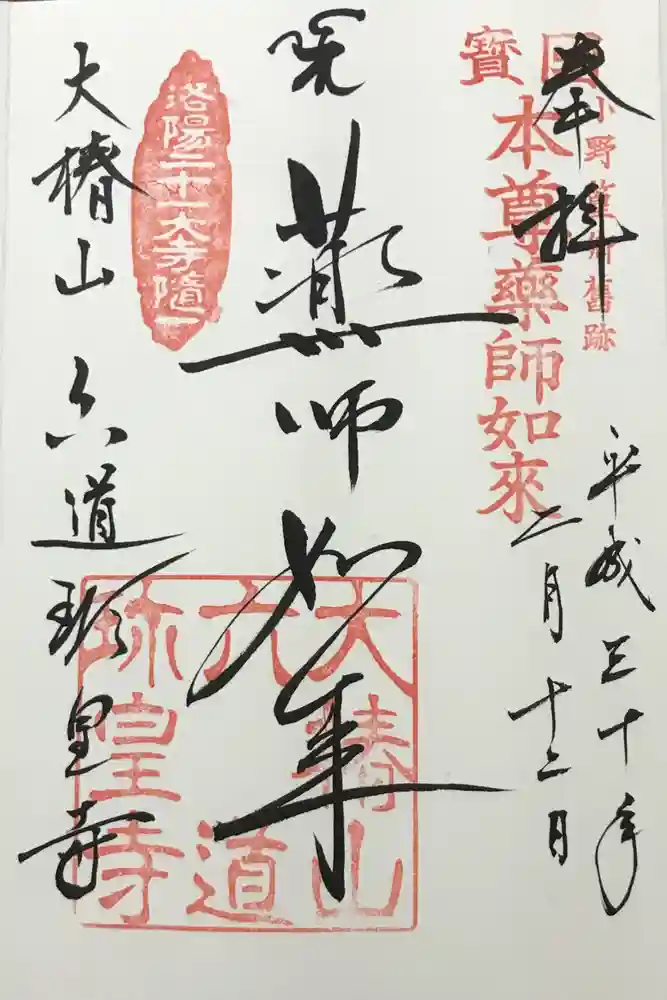 奉拝
小野篁卿舊跡
國寶
本尊藥師如來
平成三十年
二月十二日
薬師如来
洛陽二十一大寺隨一
大椿山 六道珍皇寺
大椿山
六道
珍皇寺